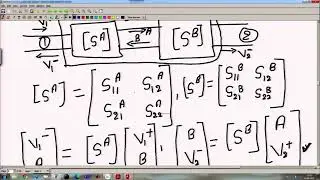 V₁⁺ [S^A] A B [S^B] V₂⁺
① V₁⁻ V₂⁻ ②
[S^A] = [S₁₁^A S₁₂^A; S₂₁^A S₂₂^A], [S^B] = [S₁₁^B S₁₂^B; S₂₁^B S₂₂^B]
[V₁⁻; A] = [S^A] [V₁⁺; B], [B; V₂⁻] = [S^B] [A; V₂⁺]